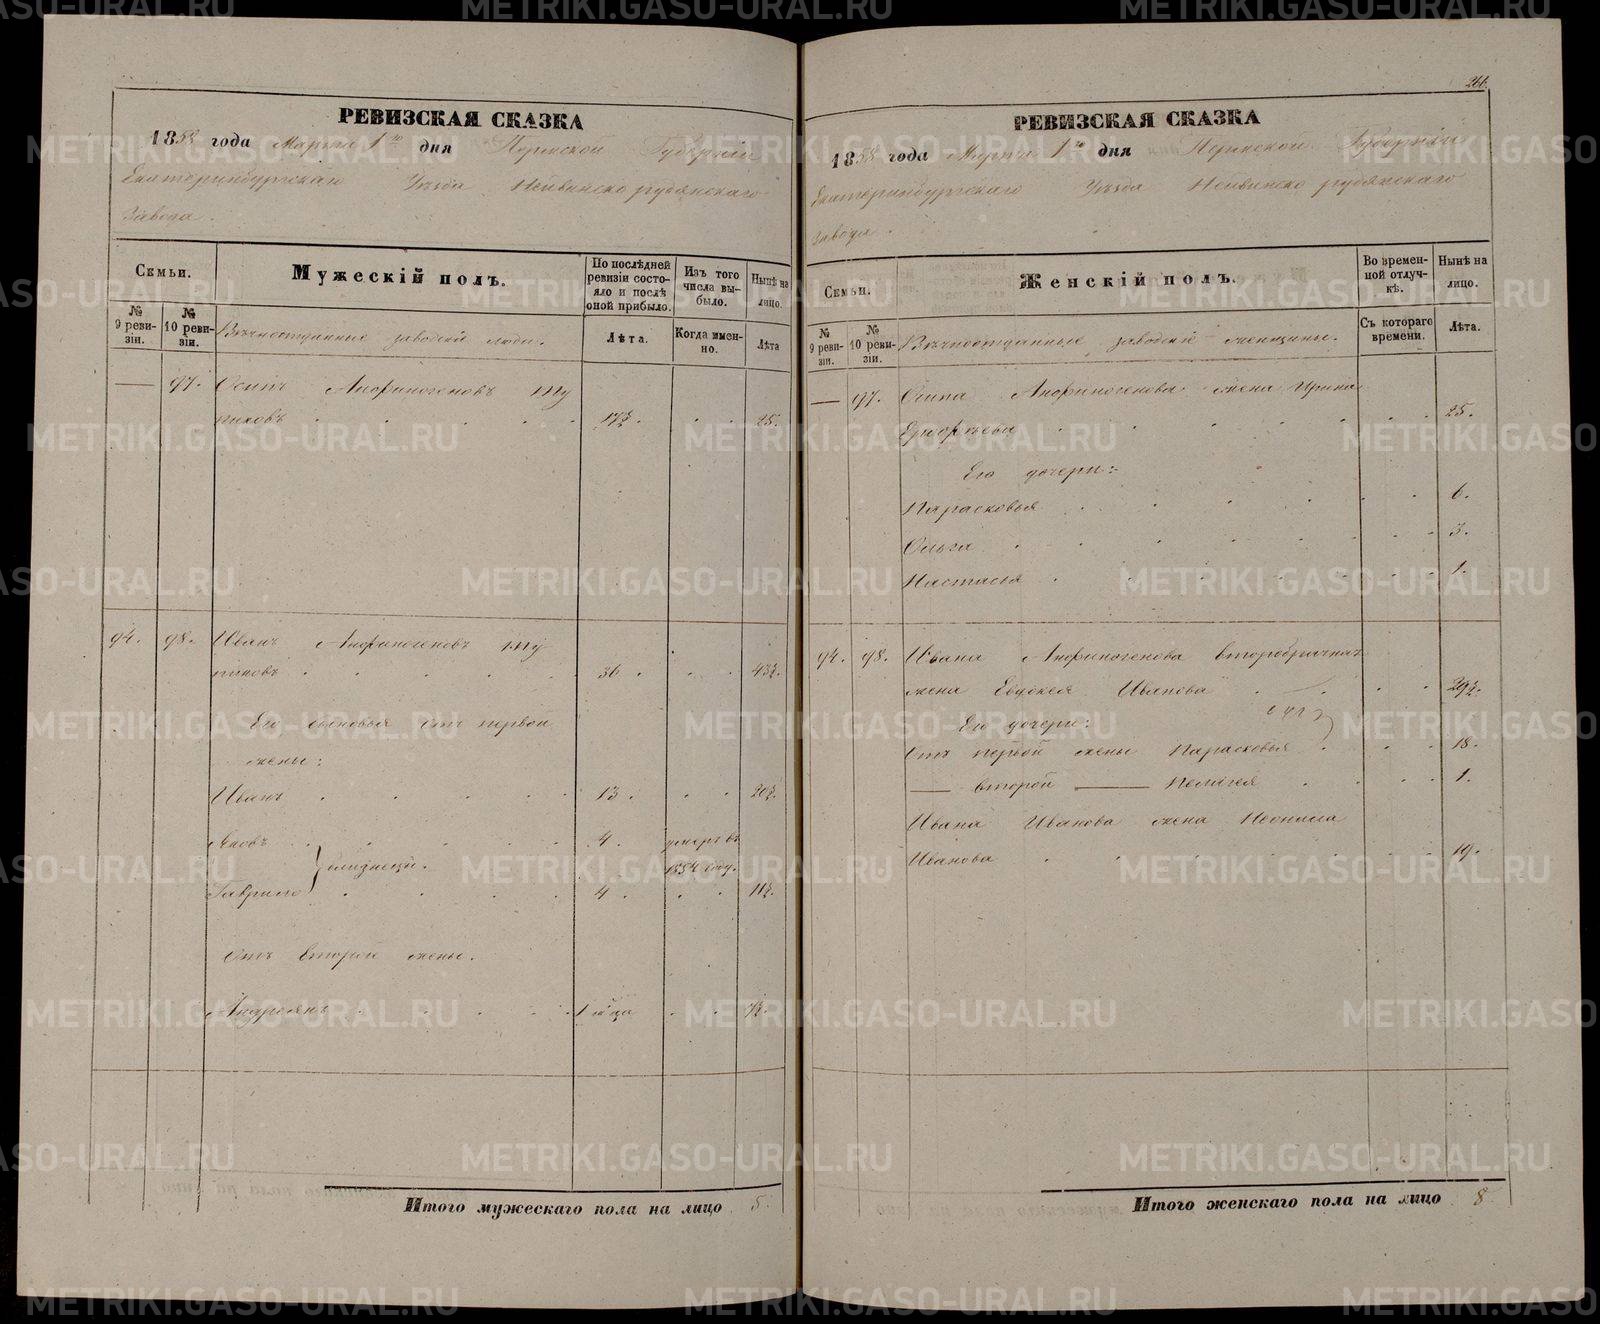 РЕВИЗСКАЯ СКАЗКА
1858 года Марта 1го дня Пермской Губернии
Екатеринбургскаго Уѣзда Нейвинско рудянскаго
завода.
Семьи.
Мужескій полъ.
По послѣдней ревизіи состояло и послѣ оной прибыло.
Изъ того числа выбыло.
Нынѣ на лицо.
№ 9 ревизіи.
№ 10 ревизіи.
Вѣчноотданные заводскіе люди.
Лѣта.
Когда именно.
Лѣта
— 97. Осипъ Анфиногеновъ Ту
пиковъ 17½. 25.
94. 98. Иванъ Анфиногеновъ Ту
пиковъ 36. 43½.
Его сыновья отъ первой
жены:
Иванъ 13. 20½.
Яковъ 4. умеръ въ
близнецы. 1854 году.
Гаврило 4. 11½.
Отъ второй жены.
Андреянъ 1 м͞ца 7½.
Итого мужескаго пола на лицо 5.
266.
РЕВИЗСКАЯ СКАЗКА
1858 года Марта 1го дня Пермской Губерніи
Екатеринбургскаго Уѣзда Нейвинско рудянскаго
завода.
Семьи.
Женскій полъ.
Во временной отлучкѣ.
Нынѣ на лицо.
№ 9 ревизіи.
№ 10 ревизіи.
Вѣчноотданные заводскіе женщины.
Съ котораго времени.
Лѣта.
— 97. Осипа Анфиногенова жена Ирина
Егорьева 25.
Его дочери:
Парасковья 6.
Ольга 3.
Настасья 1.
94. 98. Ивана Анфиногенова второбрачная
жена Евдокея Иванова 29½.
Его дочери:
Отъ первой жены Парасковья 18.
— второй — Пелагея 1.
Ивана Иванова жена Неонила
Иванова 19.
Итого женскаго пола на лицо 8
METRIKI.GASO-URAL.RU